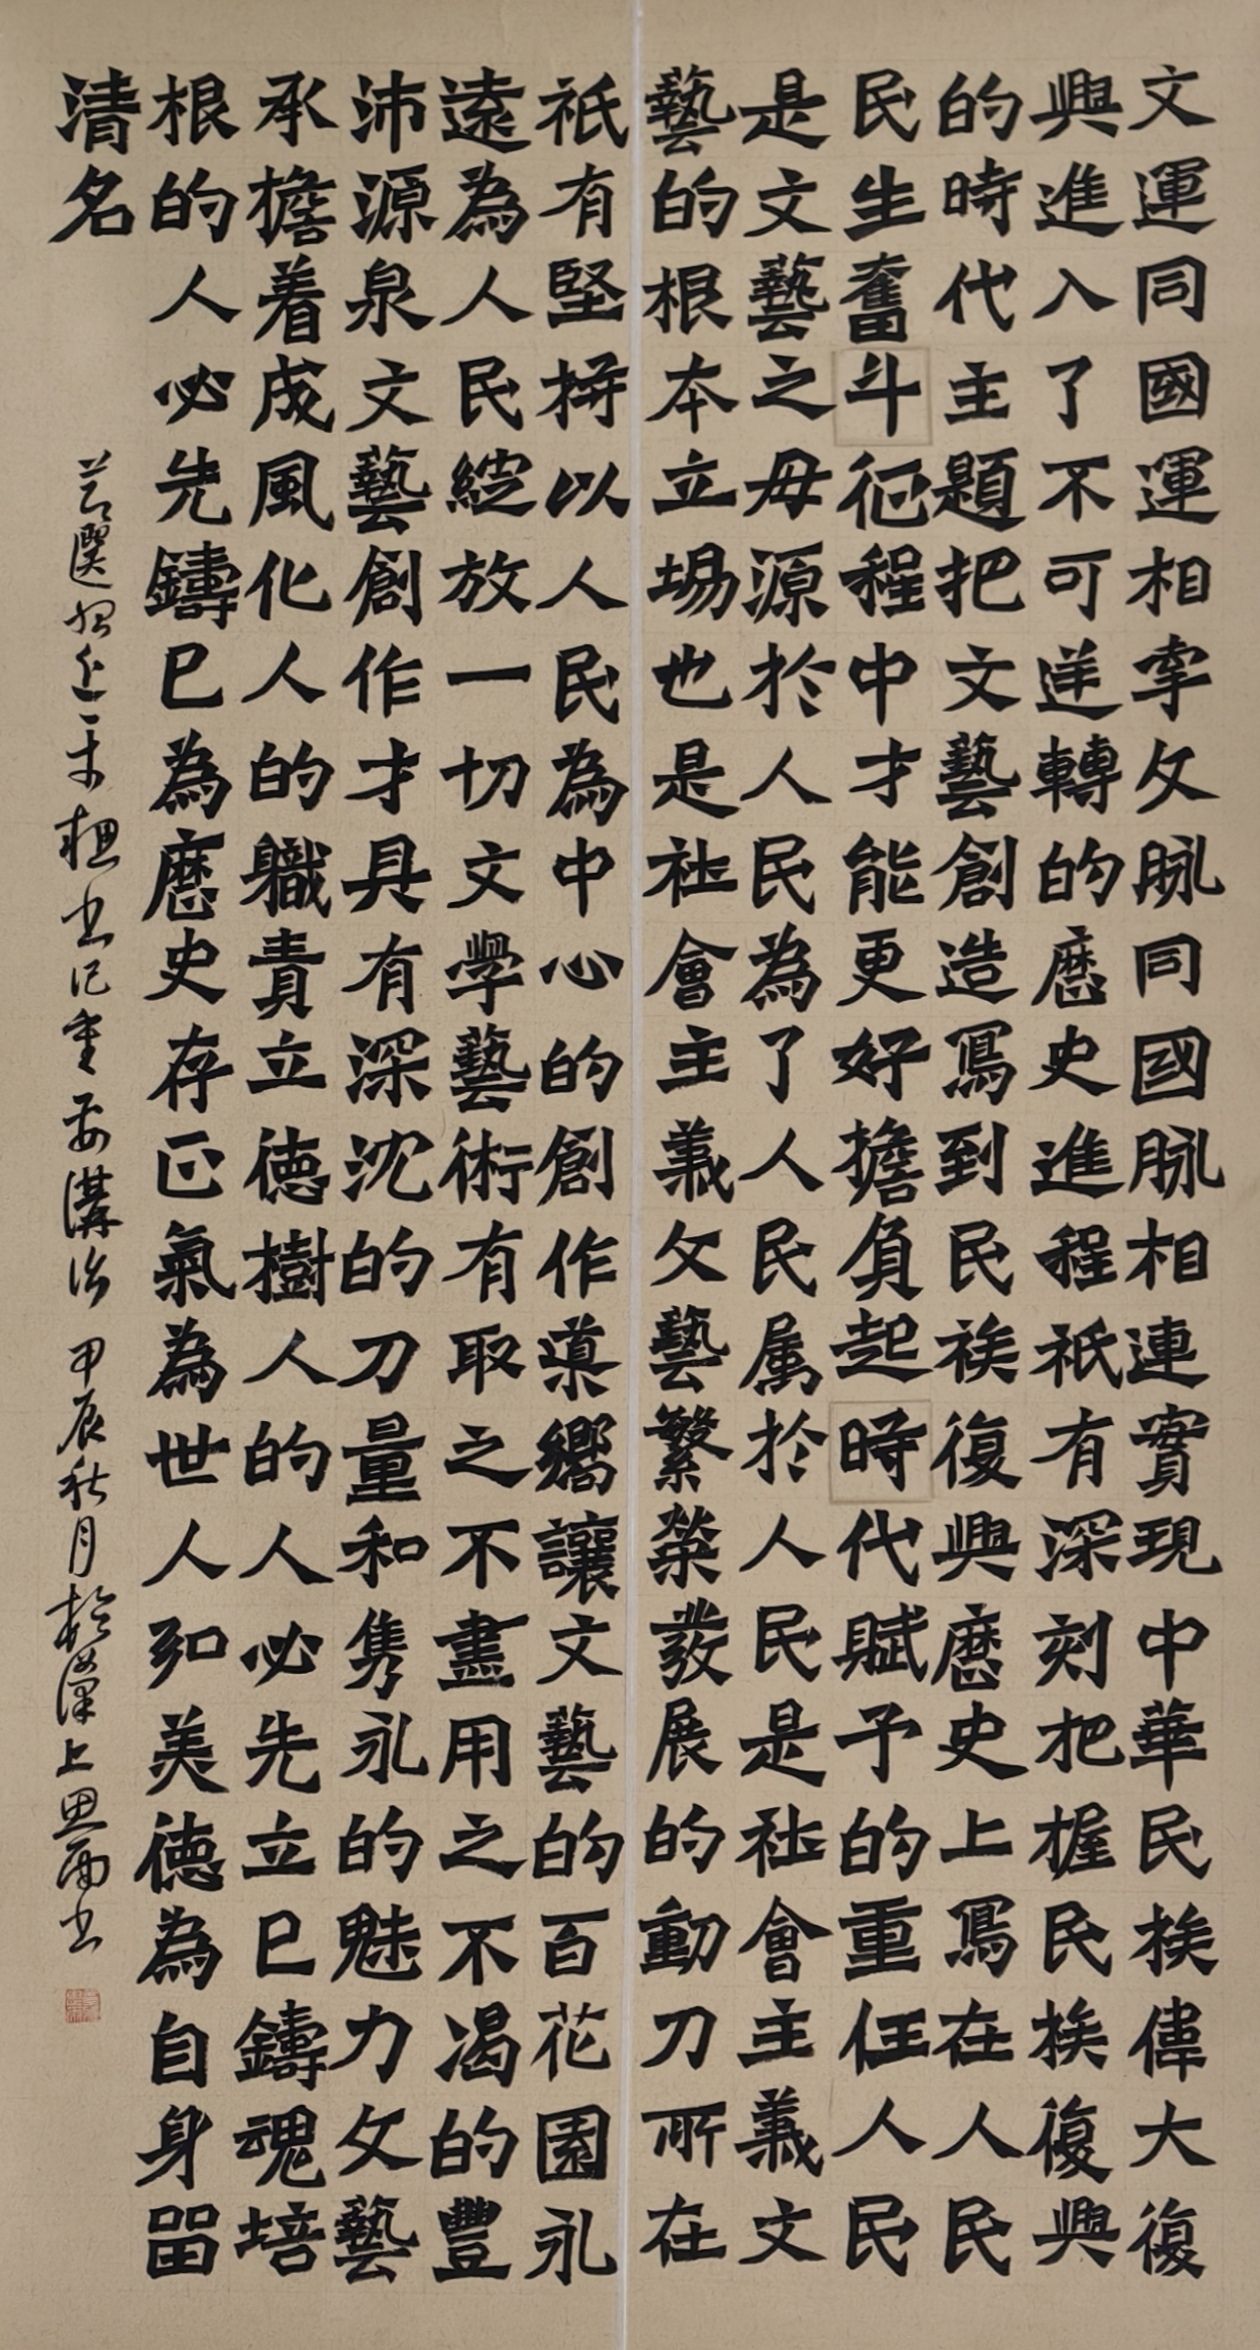 文運同國運相牽文脉同國脉相連實現中華民族偉大復
興進入了不可逆轉的歷史進程祇有深刻把握民族復興
的時代主題把文藝創造寫到民族復興歷史上寫在人民
民生奮斗征程中才能更好擔負起時代賦予的重任人民
是文藝之母源於人民為了人民属於人民是社會主義文
藝的根本立場也是社會主義文藝繁榮發展的動力所在
祇有堅持以人民為中心的創作導嚮讓文藝的百花園永
遠為人民綻放一切文學藝術有取之不盡用之不渴的豐
沛源泉文藝創作才具有深沈的力量和雋永的魅力文藝
承擔着成風化人的職責立德樹人的人必先立己鑄魂培
根的人必先鑄己為歷史存正氣為世人弘美德為自身留
清名
節選習近平總书记重要講话 甲辰秋月於漢上 書